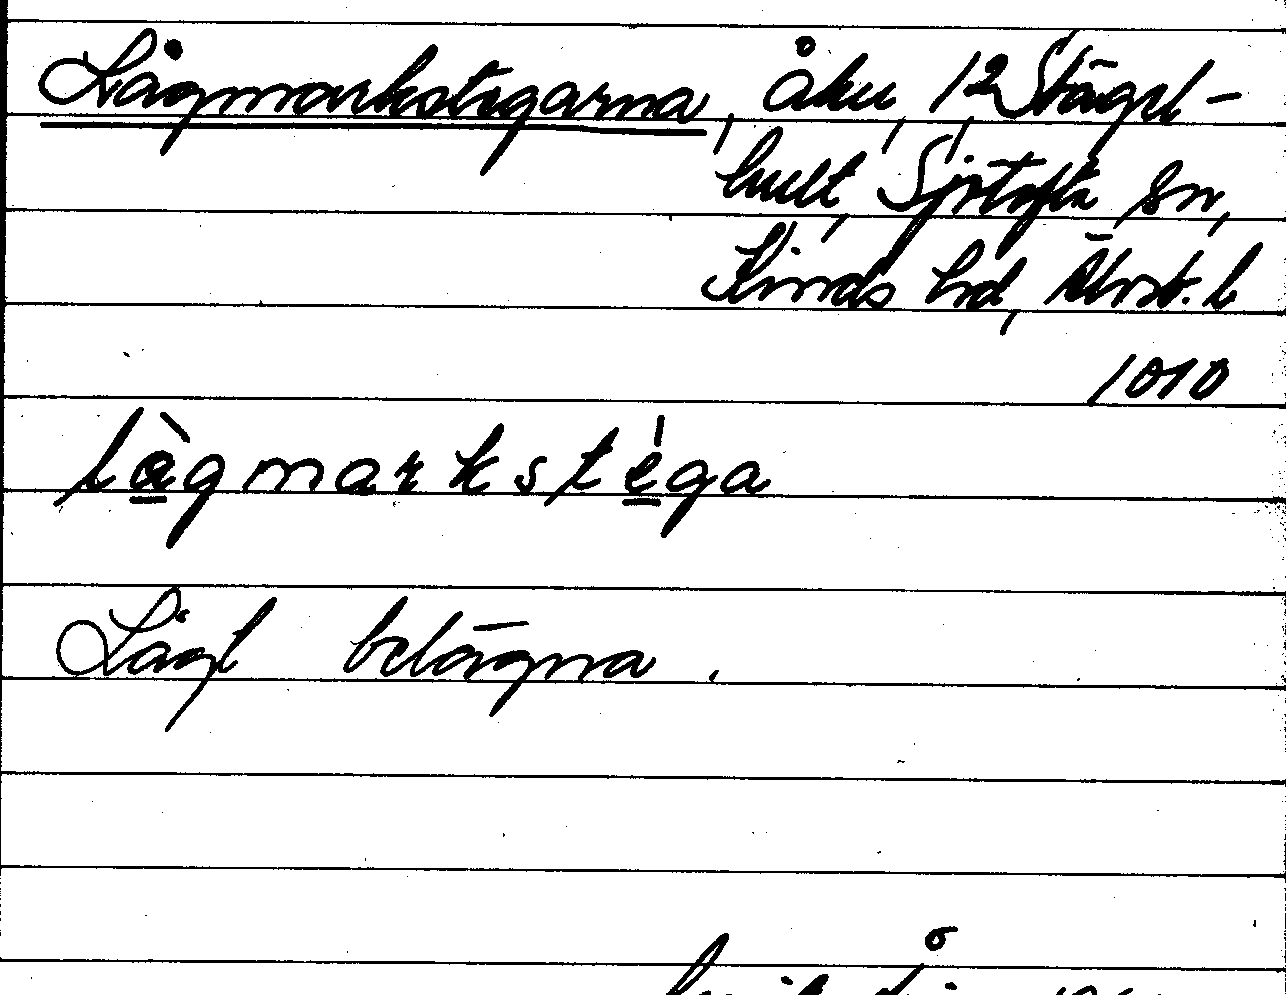 Lågmarkstegarna, åku, 12 Stägel-
hult, Sjötofta sn,
Kinds hd, Älvsb. l
1010
lågmarkstéga
Lågt belägna.